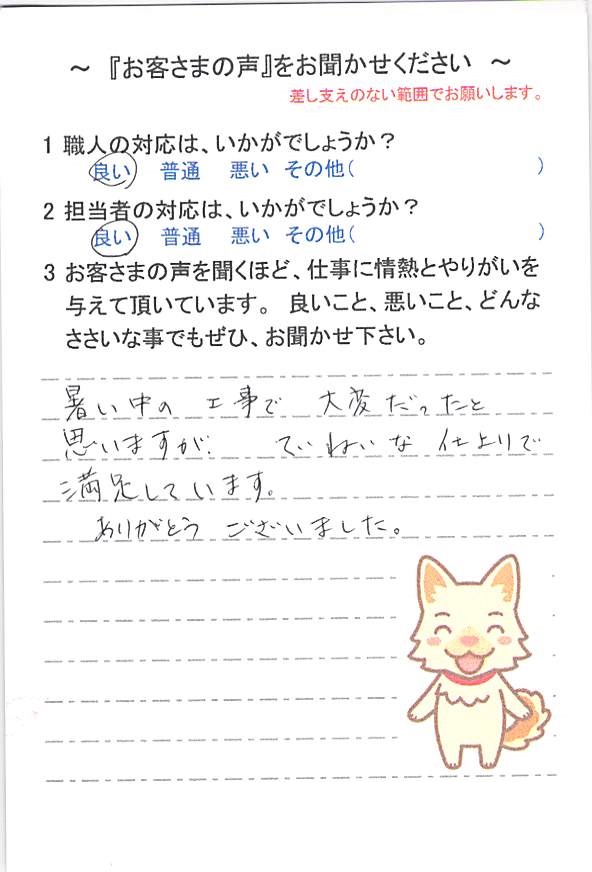 ～ 『お客さまの声』をお聞かせください ～
差し支えのない範囲でお願いします。
1 職人の対応は、いかがでしょうか？
良い 普通 悪い その他( )
2 担当者の対応は、いかがでしょうか？
良い 普通 悪い その他( )
3 お客さまの声を聞くほど、仕事に情熱とやりがいを
与えて頂いています。 良いこと、悪いこと、どんな
ささいな事でもぜひ、お聞かせ下さい。
暑い中の 工事で 大変だったと
思いますが、 ていねいな 仕上りで
満足しています。
ありがとう ございました。